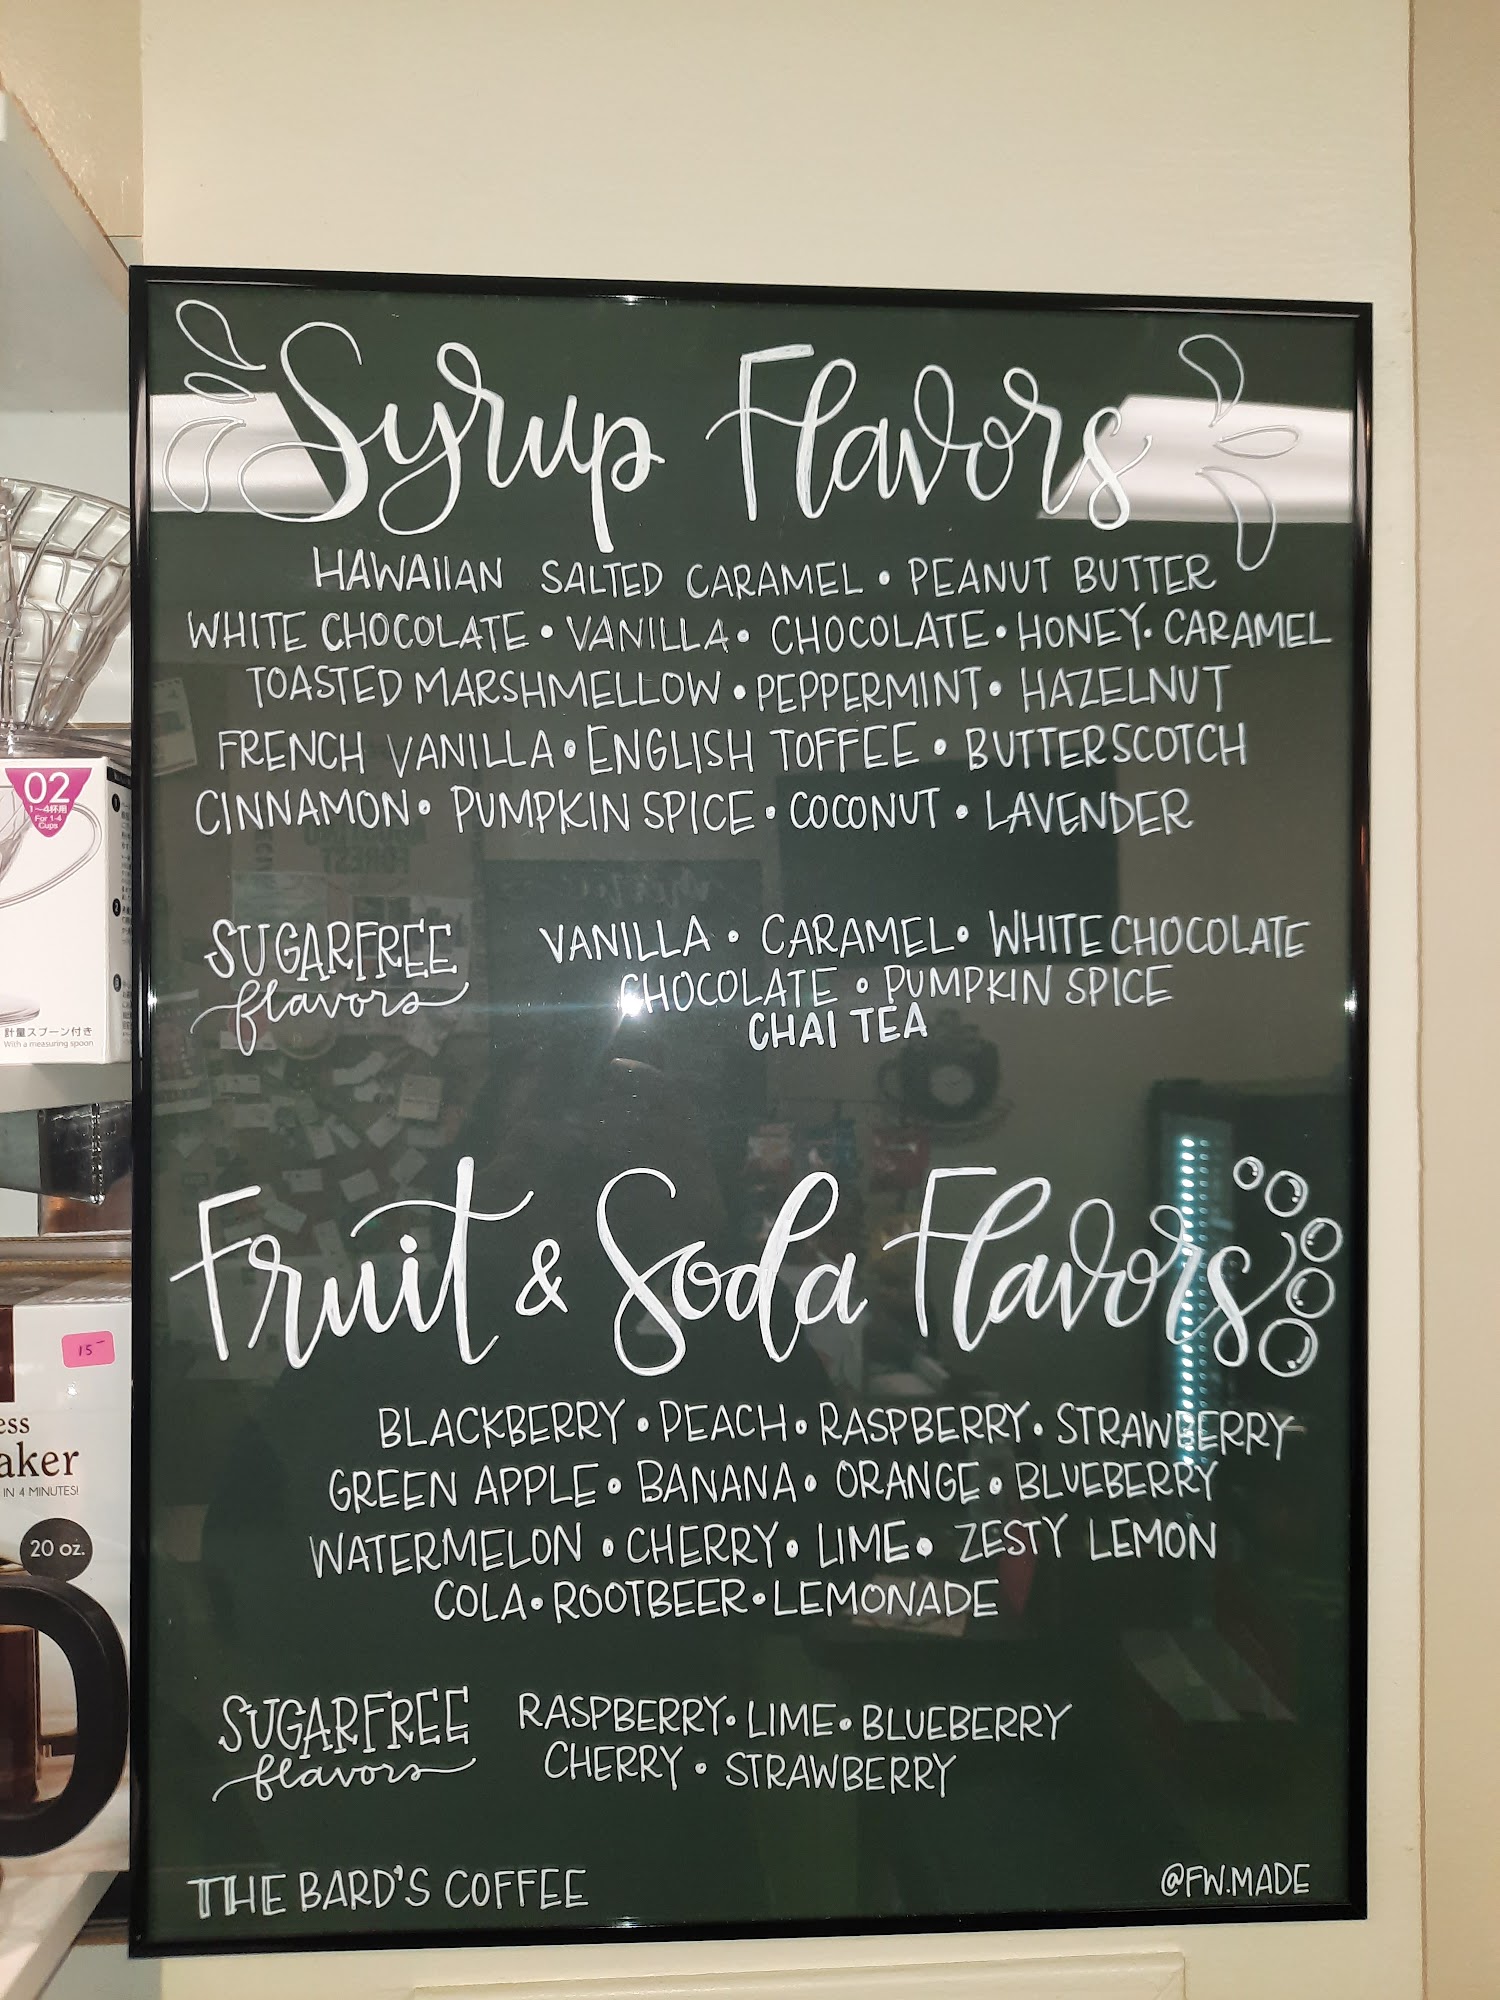 Syrup Flavors
HAWAIIAN SALTED CARAMEL • PEANUT BUTTER
WHITE CHOCOLATE • VANILLA • CHOCOLATE • HONEY • CARAMEL
TOASTED MARSHMELLOW • PEPPERMINT • HAZELNUT
FRENCH VANILLA • ENGLISH TOFFEE • BUTTERSCOTCH
CINNAMON • PUMPKIN SPICE • COCONUT • LAVENDER
SUGARFREE
flavors
VANILLA • CARAMEL • WHITE CHOCOLATE
CHOCOLATE • PUMPKIN SPICE
CHAI TEA
Fruit & Soda Flavors
BLACKBERRY • PEACH • RASPBERRY • STRAWBERRY
GREEN APPLE • BANANA • ORANGE • BLUEBERRY
WATERMELON • CHERRY • LIME • ZESTY LEMON
COLA • ROOTBEER • LEMONADE
SUGARFREE
flavors
RASPBERRY • LIME • BLUEBERRY
CHERRY • STRAWBERRY
THE BARD'S COFFEE
@FW.MADE
02
1~4杯用
For 1-4
Cups
計量スプーン付き
With a measuring spoon
15-
ess
aker
IN 4 MINUTES!
20 oz.